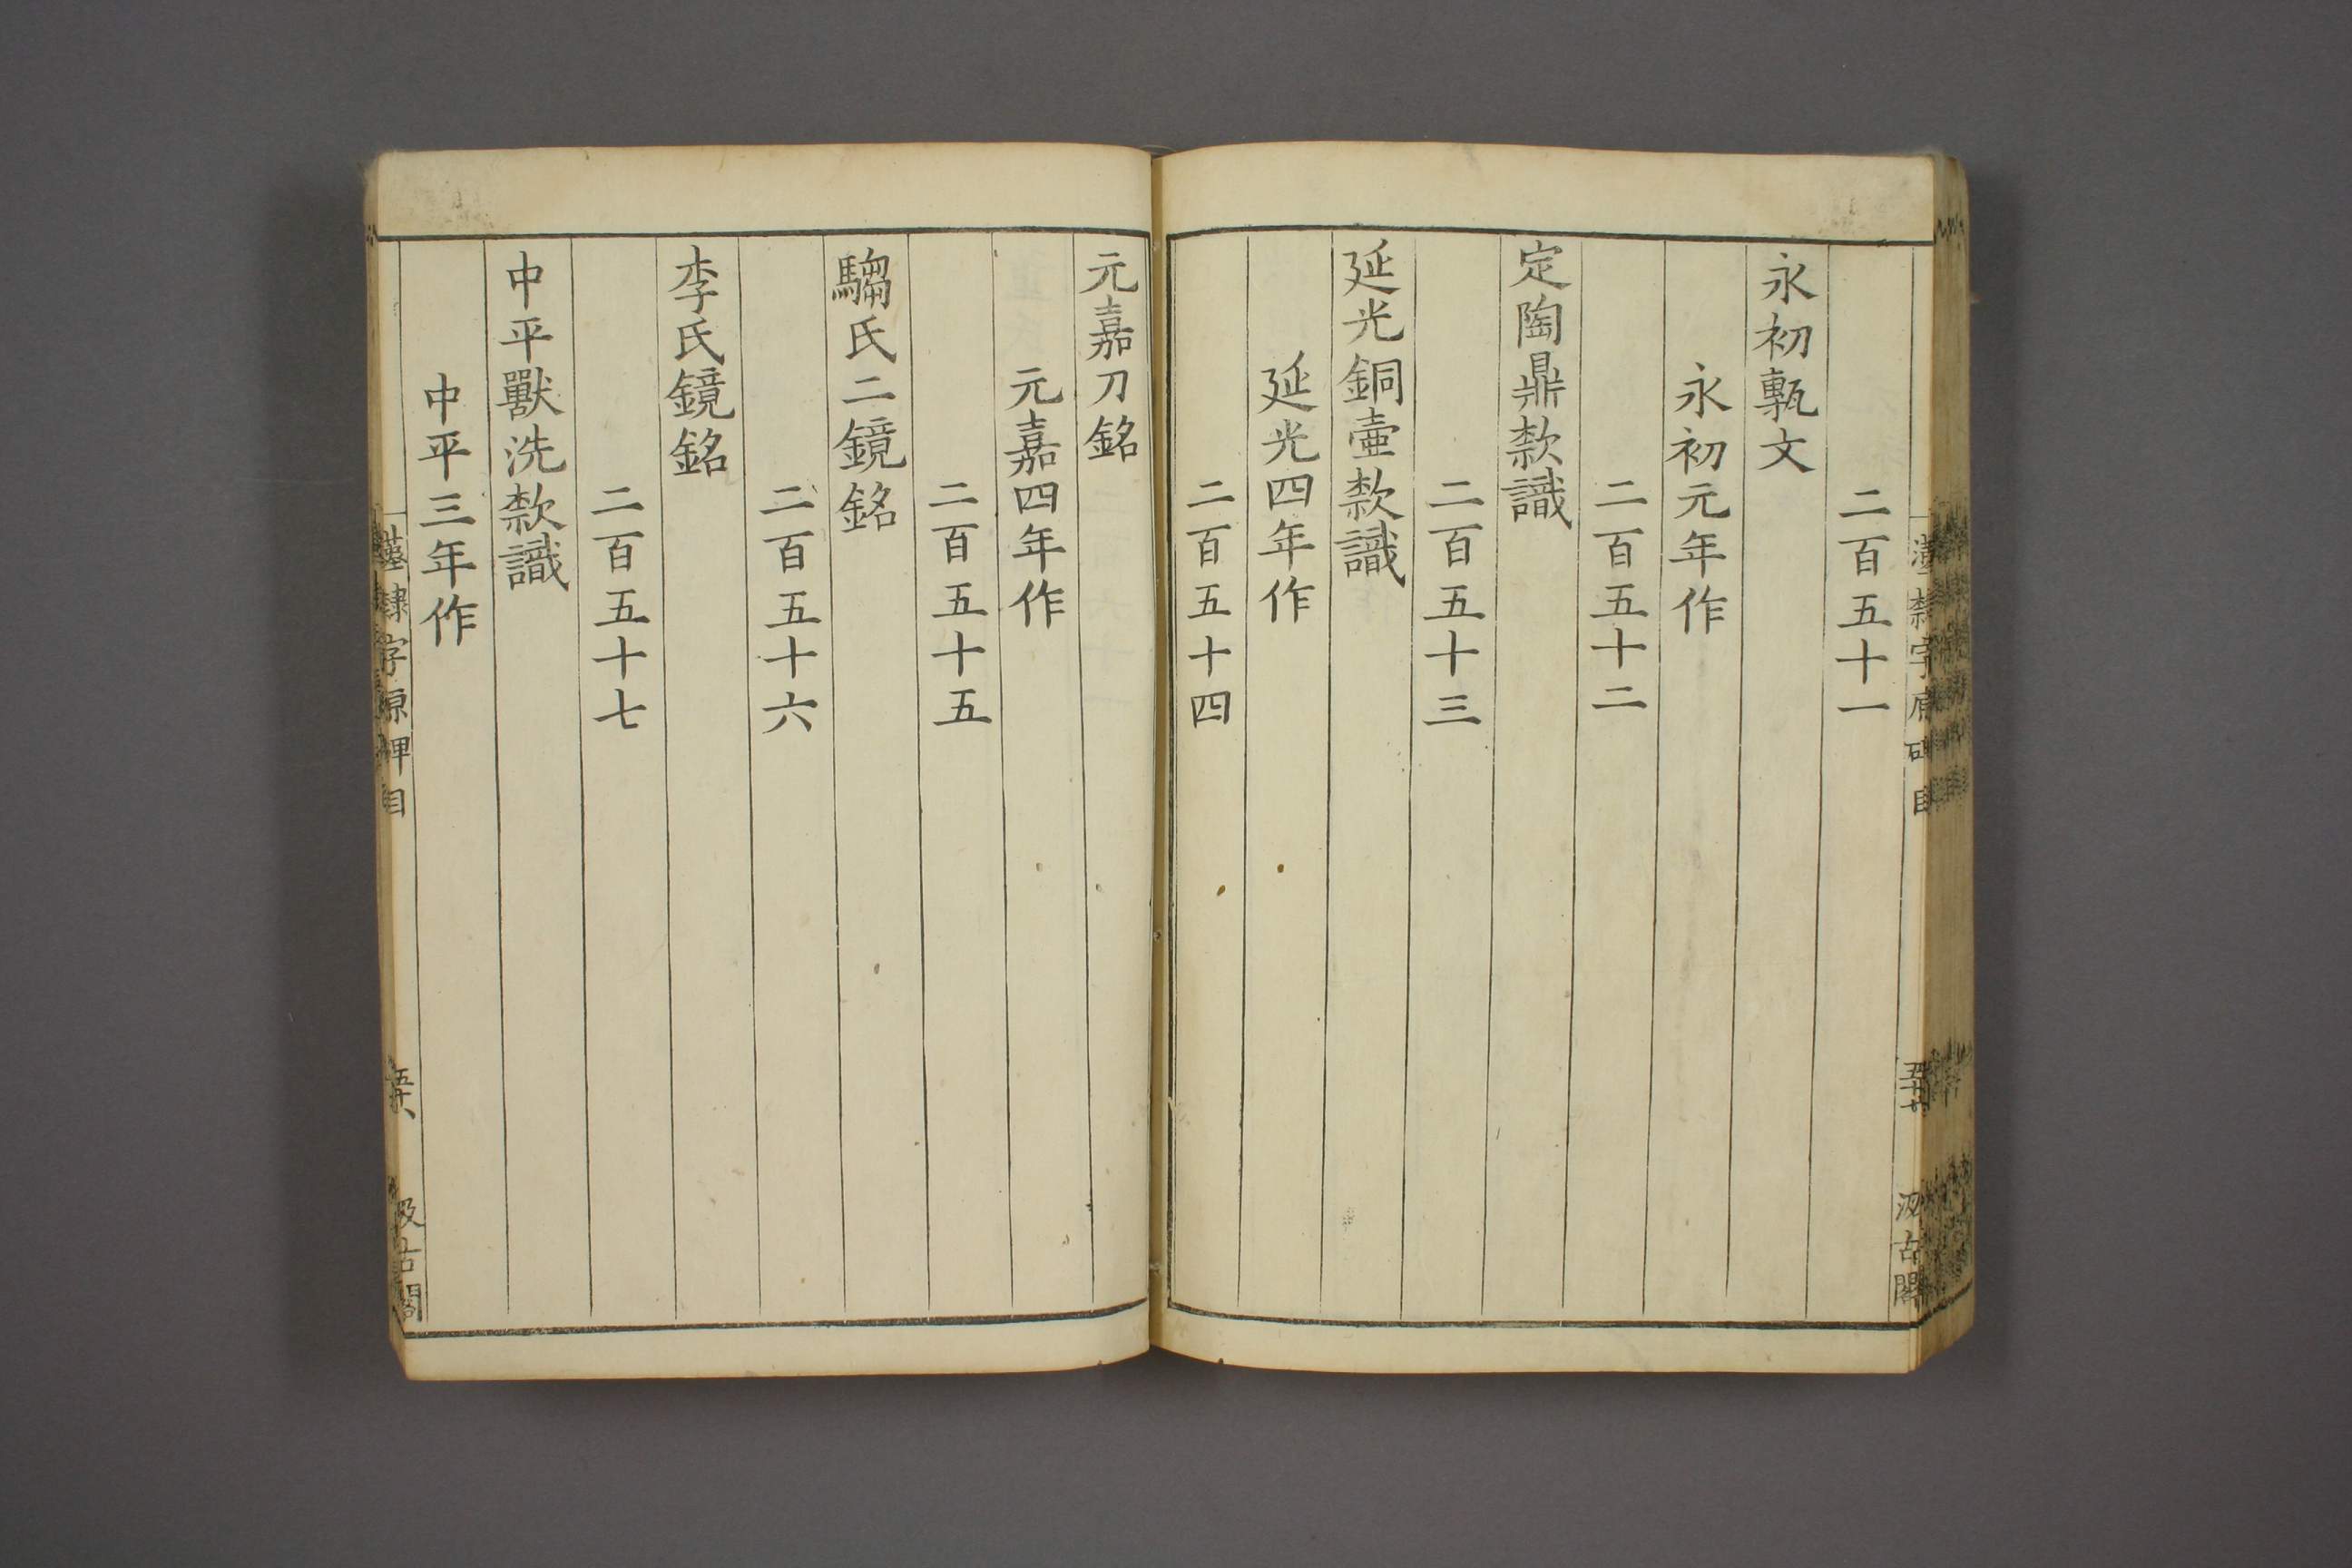 二百五十一
永初甎文
永初元年作
二百五十二
定陶鼎款識
二百五十三
延光銅壷款識
延光四年作
二百五十四
元嘉刀銘
元嘉四年作
二百五十五
騶氏二鏡銘
二百五十六
李氏鏡銘
二百五十七
中平獸洗款識
中平三年作
隸字原碑目
汲古閣